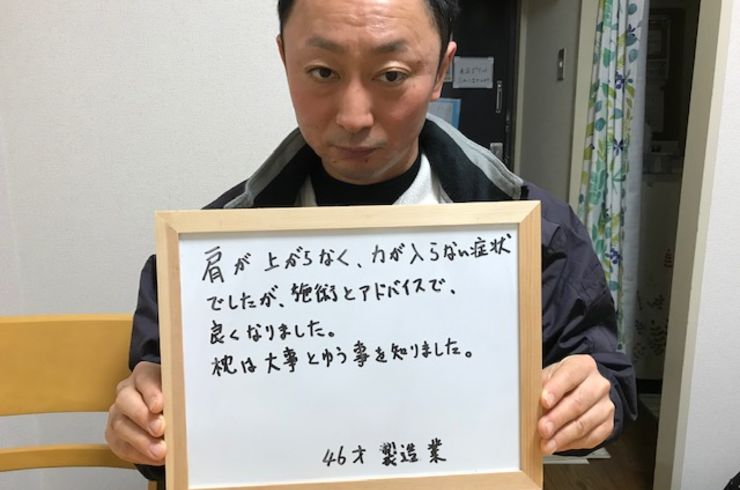 肩が上がらなく、力が入らない症状
でしたが、施術とアドバイスで、
良くなりました。
枕は大事とゆう事を知りました。
46才 製造業